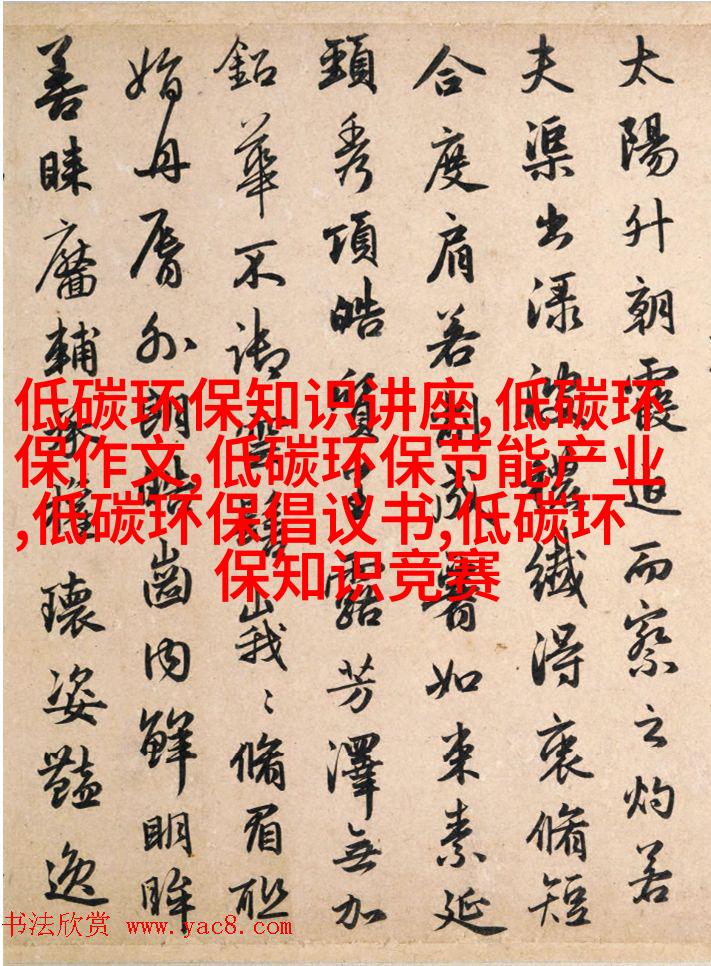 太陽升朝霞迫而察之灼若
夫渠出渌波穠纖得衷脩短
合度肩若削成如束素延
頸秀項皓質呈露芳澤無加
鉛華不御雲髻峩〻脩眉聯
娟丹脣外朗皓齒内鮮明眸
善睞靨輔承權瓌姿豔逸
低碳环保知识讲座,低碳环
保作文,低碳环保节能产业
,低碳环保倡议书,低碳环
保知识竞赛
书法欣赏 www.yac8.com